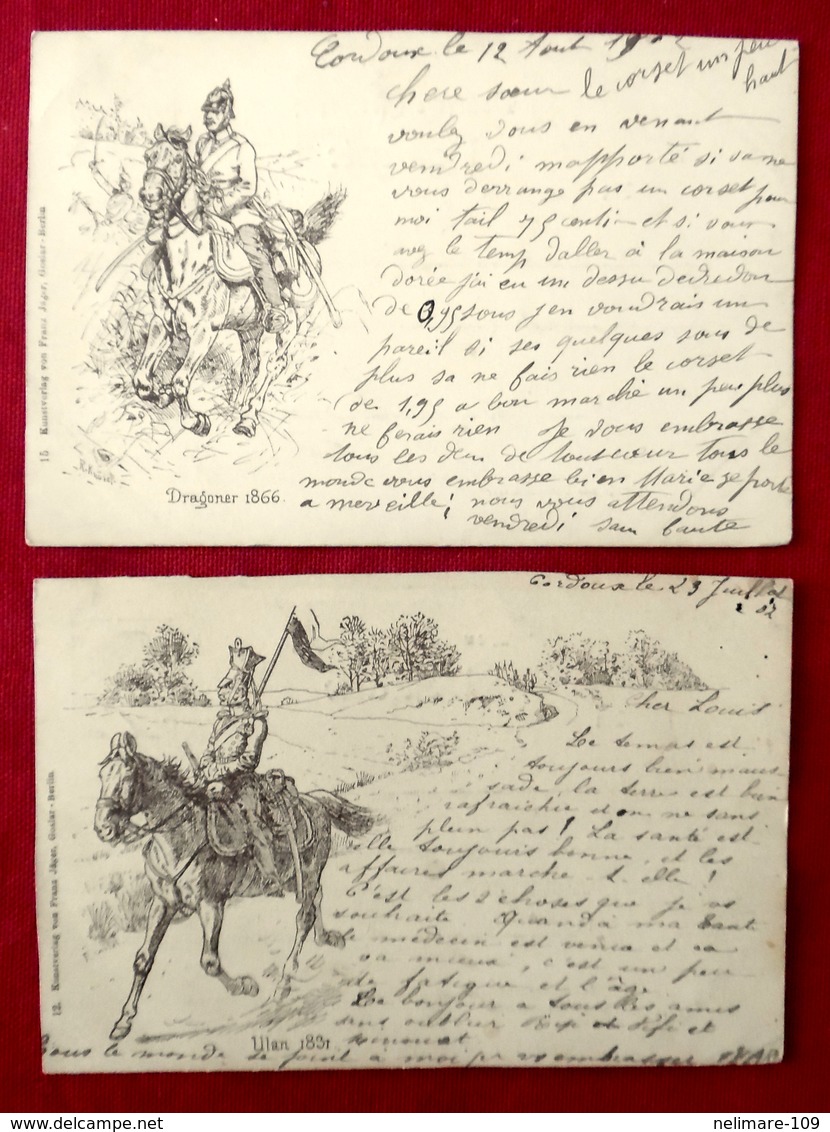 Cordoux le 12 Aout
chere sœur le corset un peu
haut
voulez vous en venant
vendredi m'apporté si sa ne
vous derrange pas un corset pour
moi tail 75 centi et si vous
avez le temp d'aller à la maison
dorée j'ai eu un dessu dedredon
de 0,95 sous j'en voudrais un
pareil si ses quelques sous de
plus sa ne fais rien le corset
de 1,95 a bon marché un peu plus
ne ferais rien Je vous embrasse
tous les deux de tout cœur tous le
monde vous embrasse bien Marie se porte
a merveille; nous vous attendons
vendredi sans faute
15 Kunstverlag von Franz Jäger, Goslar-Berlin
Dragoner 1866.
Cordoux le 23 Juillet
02
Cher Louis
Le temps est
toujours bien maus
sade, la terre est bien
rafraichie et on ne s'en
plein pas! La santé est
elle toujours bonne, et les
affaires marche-t-elle!
C'est les 2 choses que je vs
souhaite. Quand à ma tante
le médecin est venu et ça
va mieux, c'est un peu
de fatigue et l'âge.
Le bonjour a tous les amis
sans oublier et Fifi et
tous le monde se joint à moi pr vs embrasser
12. Kunstverlag von Franz Jäger, Goslar-Berlin
Ulan 1831
delcampe.net
nelimare-109